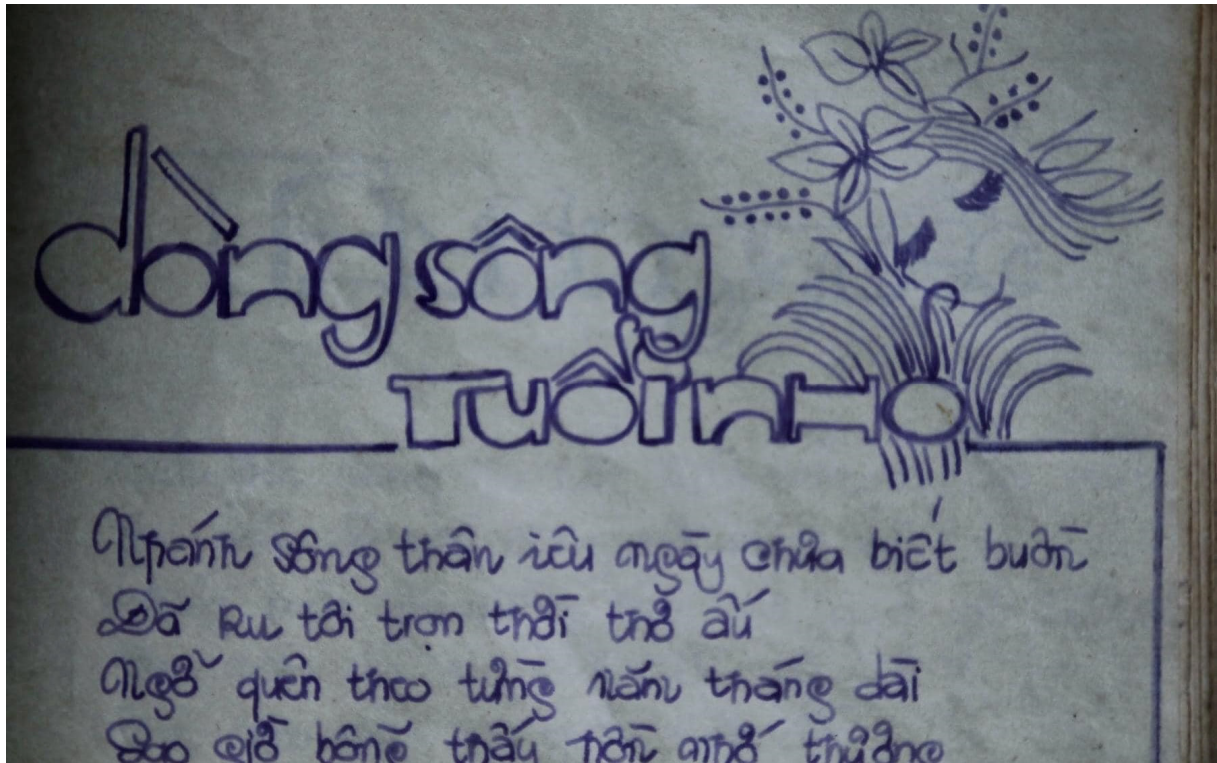 dòng sông
Tuổi nhỏ
Nhánh sông thân yêu ngày chưa biết buồn
Đã Ru tôi trọn thời thơ ấu
Ngỡ quên theo từng năm tháng dài
Sao giờ bỗng thấy hồn nhớ thương